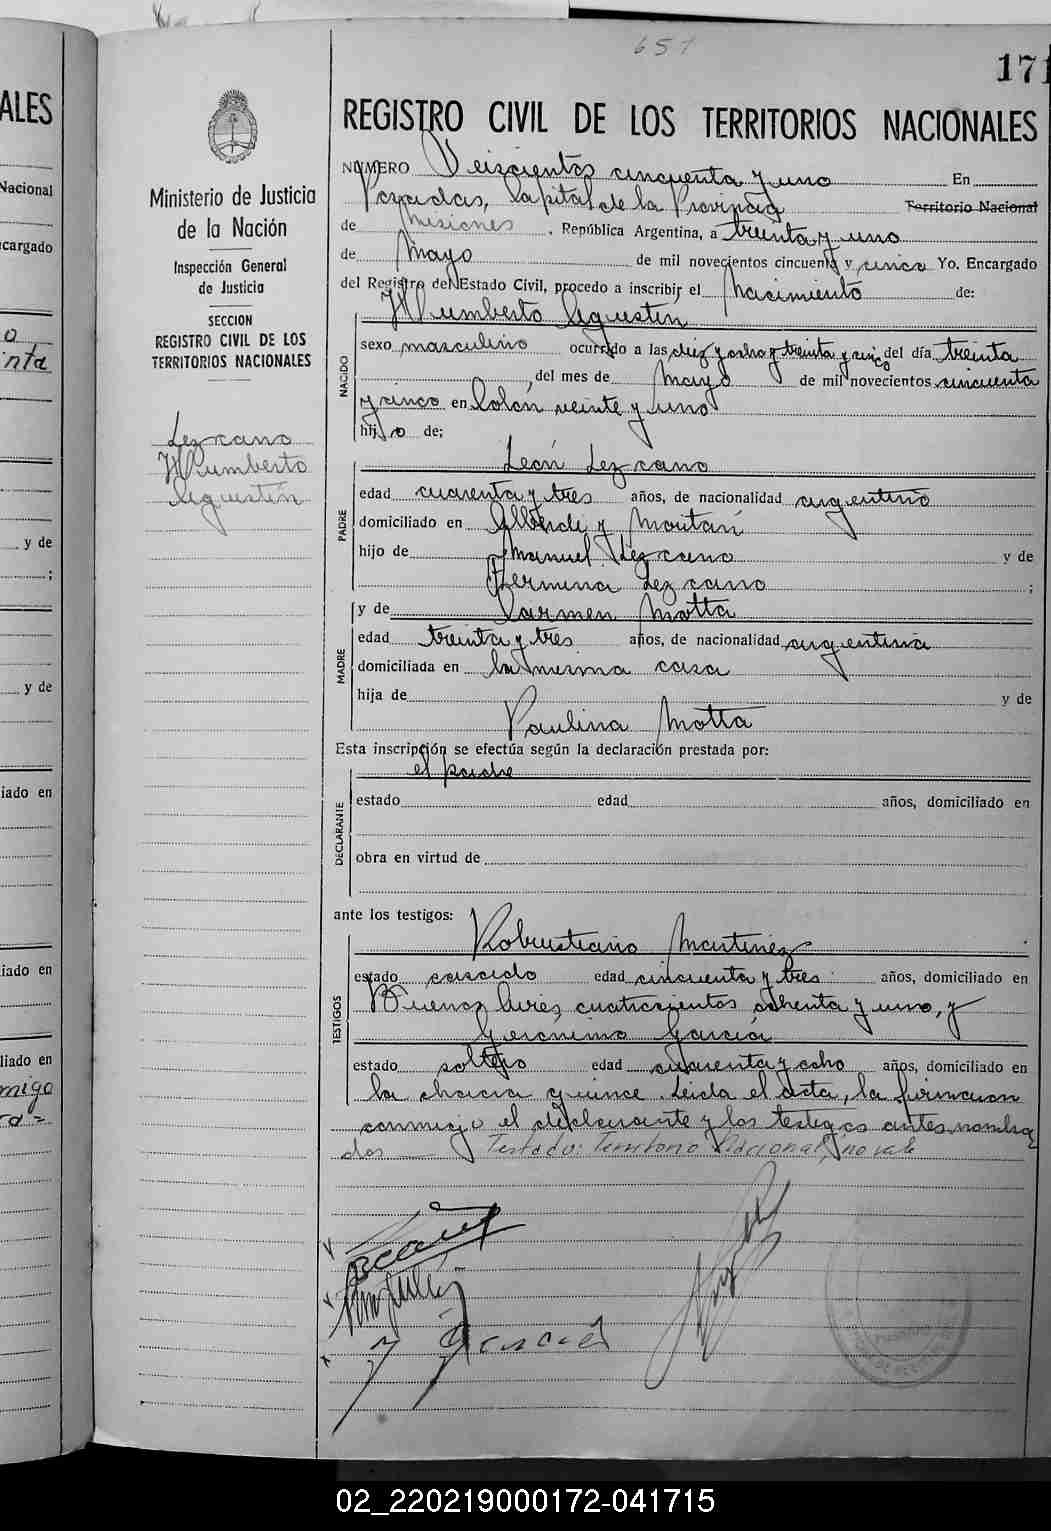 651
171
REGISTRO CIVIL DE LOS TERRITORIOS NACIONALES
Ministerio de Justicia
de la Nación
Inspección General
de Justicia
SECCION
REGISTRO CIVIL DE LOS
TERRITORIOS NACIONALES
Lezcano
Humberto
Agustín
NUMERO Seiscientos cincuenta y uno En
Posadas, Capital de la Provincia Territorio Nacional
de Misiones, República Argentina, a treinta y uno
de Mayo de mil novecientos cincuenta y cinco Yo. Encargado
del Registro del Estado Civil, procedo a inscribir el Nacimiento de:
Humberto Agustín
NACIDO
sexo masculino ocurrido a las diez y ocho y treinta y cinco del día treinta
, del mes de Mayo de mil novecientos cincuenta
y cinco en Colón veinte y uno
hijo de;
León Lezcano
PADRE
edad cuarenta y tres años, de nacionalidad argentino
domiciliado en Alberdi y
hijo de Manuel Lezcano y de
Fermina Lezcano ;
y de Carmen Motta
MADRE
edad treinta y tres años, de nacionalidad argentina
domiciliada en la misma casa
hija de y de
Paulina Motta
Esta inscripción se efectúa según la declaración prestada por:
el padre
DECLARANTE
estado edad años, domiciliado en
obra en virtud de
ante los testigos:
Robustiano Martinez
TESTIGOS
estado casado edad cincuenta y tres años, domiciliado en
Buenos Aires cuatrocientos ochenta y uno, y
Gerónimo García
estado soltero edad cuarenta y ocho años, domiciliado en
la chacra quince. Leida el acta, la firmaron
conmigo el declarante y los testigos antes nombra
dos Testado: Territorio Nacional, no vale
ALES
Nacional
cargado
o
nta
y de
;
y de
iado en
iado en
liado en
migo
02_220219000172-041715